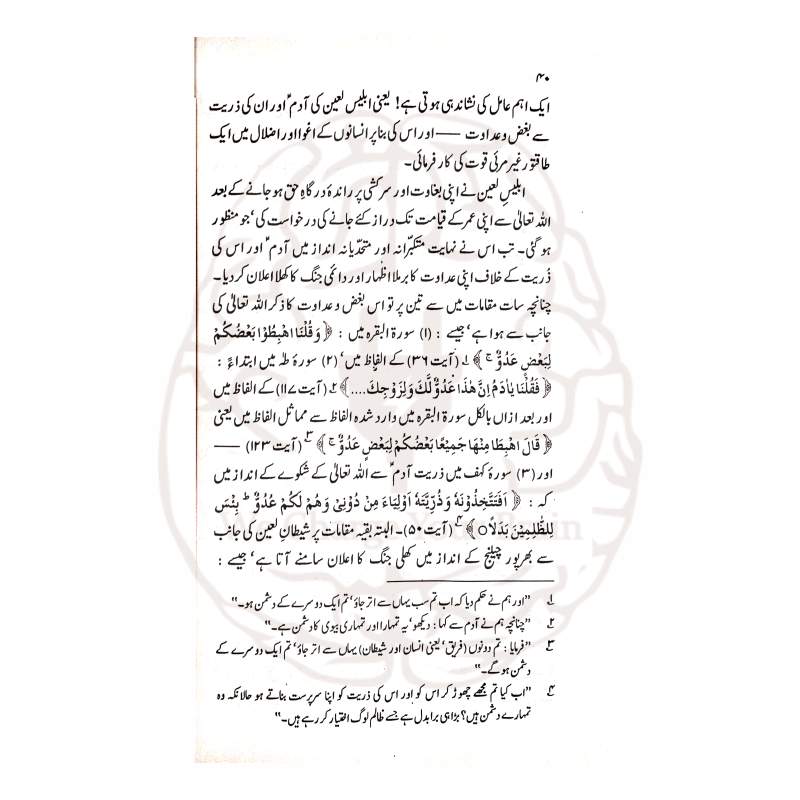 ۴۰
ایک اہم عامل کی نشاندہی ہوتی ہے! یعنی ابلیس لعین کی آدمؑ اور ان کی ذریت
سے بغض و عداوت —— اور اس کی بنا پر انسانوں کے اغوا اور اضلال میں ایک
طاقتور غیر مرئی قوت کی کار فرمائی۔
ابلیسِ لعین نے اپنی بغاوت اور سرکشی پر راندۂ درگاہِ حق ہو جانے کے بعد
اللہ تعالیٰ سے اپنی عمر کے قیامت تک دراز کئے جانے کی درخواست کی، جو منظور
ہو گئی۔ تب اس نے نہایت متکبّرانہ اور متحدّیانہ انداز میں آدمؑ اور اس کی
ذُریت کے خلاف اپنی عداوت کا برملا اظہار اور دائمی جنگ کا کھلا اعلان کر دیا۔
چنانچہ سات مقامات میں سے تین پر تو اس بغض و عداوت کا ذکر اللہ تعالیٰ کی
جانب سے ہوا ہے، جیسے : (۱) سورۃ البقرہ میں : ﴿ وَقُلْنَا اهْبِطُوْا بَعْضُكُمْ
لِبَعْضٍ عَدُوٌّ ۚ ﴾ ۱؎ (آیت ۳۶) کے الفاظ میں، (۲) سورۂ طٰہٰ میں ابتداءً :
﴿ فَقُلْنَا يٰادَمُ اِنَّ هٰذَا عَدُوٌّ لَّكَ وَلِزَوْجِكَ.... ﴾ ۲؎ (آیت ۱۱۷) کے الفاظ میں
اور بعد ازاں بالکل سورۃ البقرہ میں وارد شدہ الفاظ سے مماثل الفاظ میں یعنی
﴿ قَالَ اهْبِطَا مِنْهَا جَمِيْعًا بَعْضُكُمْ لِبَعْضٍ عَدُوٌّ ۚ ﴾ ۳؎ (آیت ۱۲۳) ——
اور (۳) سورۂ کہف میں ذریت آدمؑ سے اللہ تعالیٰ کے شکوے کے انداز میں
کہ : ﴿ اَفَتَتَّخِذُوْنَهٗ وَذُرِّيَّتَهٗ اَوْلِيَاءَ مِنْ دُوْنِيْ وَهُمْ لَكُمْ عَدُوٌّ ؕ بِئْسَ
لِلظّٰلِمِيْنَ بَدَلًا○ ﴾ ۴؎ (آیت ۵۰)۔ البتہ بقیہ مقامات پر شیطانِ لعین کی جانب
سے بھرپور چیلنج کے انداز میں کھلی جنگ کا اعلان سامنے آتا ہے، جیسے :
۱؎ ”اور ہم نے حکم دیا کہ اب تم سب یہاں سے اتر جاؤ، تم ایک دوسرے کے دشمن ہو۔“
۲؎ ”چنانچہ ہم نے آدم سے کہا : دیکھو، یہ تمہارا اور تمہاری بیوی کا دشمن ہے۔“
۳؎ ”فرمایا : تم دونوں (فریق، یعنی انسان اور شیطان) یہاں سے اتر جاؤ، تم ایک دوسرے کے
دشمن ہو گے۔“
۴؎ ”اب کیا تم مجھے چھوڑ کر اس کو اور اس کی ذریت کو اپنا سرپرست بناتے ہو حالانکہ وہ
تمہارے دشمن ہیں؟ بڑا ہی برا بدل ہے جسے ظالم لوگ اختیار کر رہے ہیں۔“